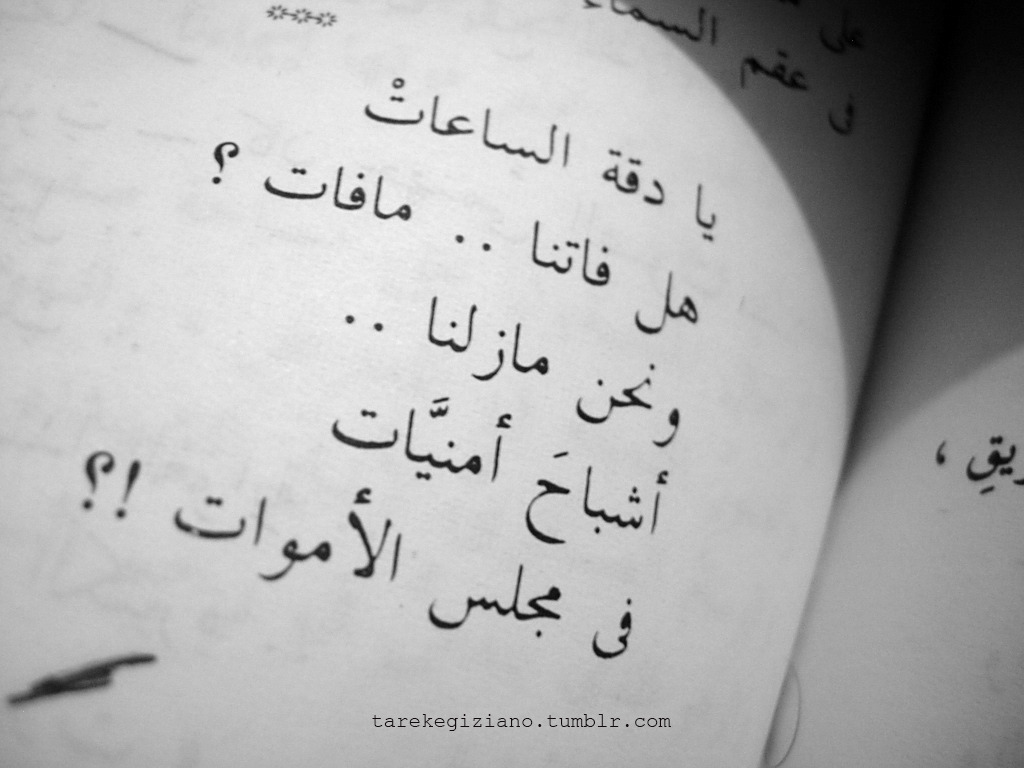 على
فى عقم السماء
***
يا دقة الساعاتْ
هل فاتنا .. مافات ؟
ونحن مازلنا ..
أشباحَ أمنيَّات
فى مجلس الأموات !؟
tarekegiziano.tumblr.com